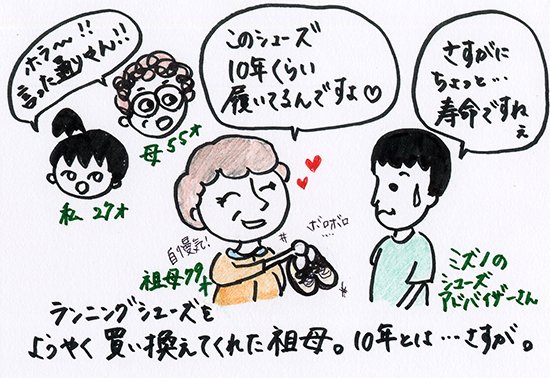 ホラ〜!!
言った通りやん!!
母55才
私 27才
このシューズ
10年くらい
履いてるんですよ♡
さすがに
ちょっと…
寿命ですねぇ
自慢気!
祖母79才
ボロボロ…
ミズノの
シューズ
アドバイザーさん
ランニングシューズを
ようやく買い換えてくれた祖母。10年とは…さすが。